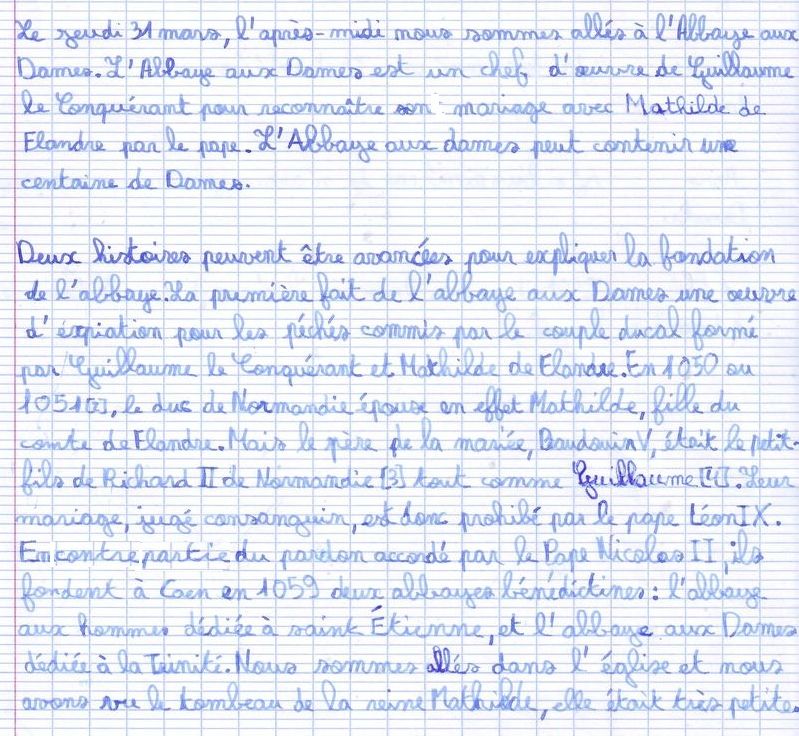 Le jeudi 31 mars, l'après-midi nous sommes allés à l'Abbaye aux
Dames. L'Abbaye aux Dames est un chef d'œuvre de Guillaume
le Conquérant pour reconnaître son mariage avec Mathilde de
Flandre par le pape. L'Abbaye aux dames peut contenir une
centaine de Dames.
Deux histoires peuvent être avancées pour expliquer la fondation
de l'abbaye. La première fait de l'abbaye aux Dames une œuvre
d'expiation pour les péchés commis par le couple ducal formé
par Guillaume le Conquérant et Mathilde de Flandre. En 1050 ou
1051[2], le duc de Normandie épouse en effet Mathilde, fille du
comte de Flandre. Mais le père de la mariée, Baudouin V, était le petit-
fils de Richard II de Normandie [3] tout comme Guillaume [4]. Leur
mariage, jugé consanguin, est donc prohibé par le pape Léon IX.
En contrepartie du pardon accordé par le Pape Nicolas II, ils
fondent à Caen en 1059 deux abbayes bénédictines : l'abbaye
aux hommes dédiée à saint Étienne, et l'abbaye aux Dames
dédiée à la Trinité. Nous sommes allés dans l'église et nous
avons vu le tombeau de la reine Mathilde, elle était très petite.